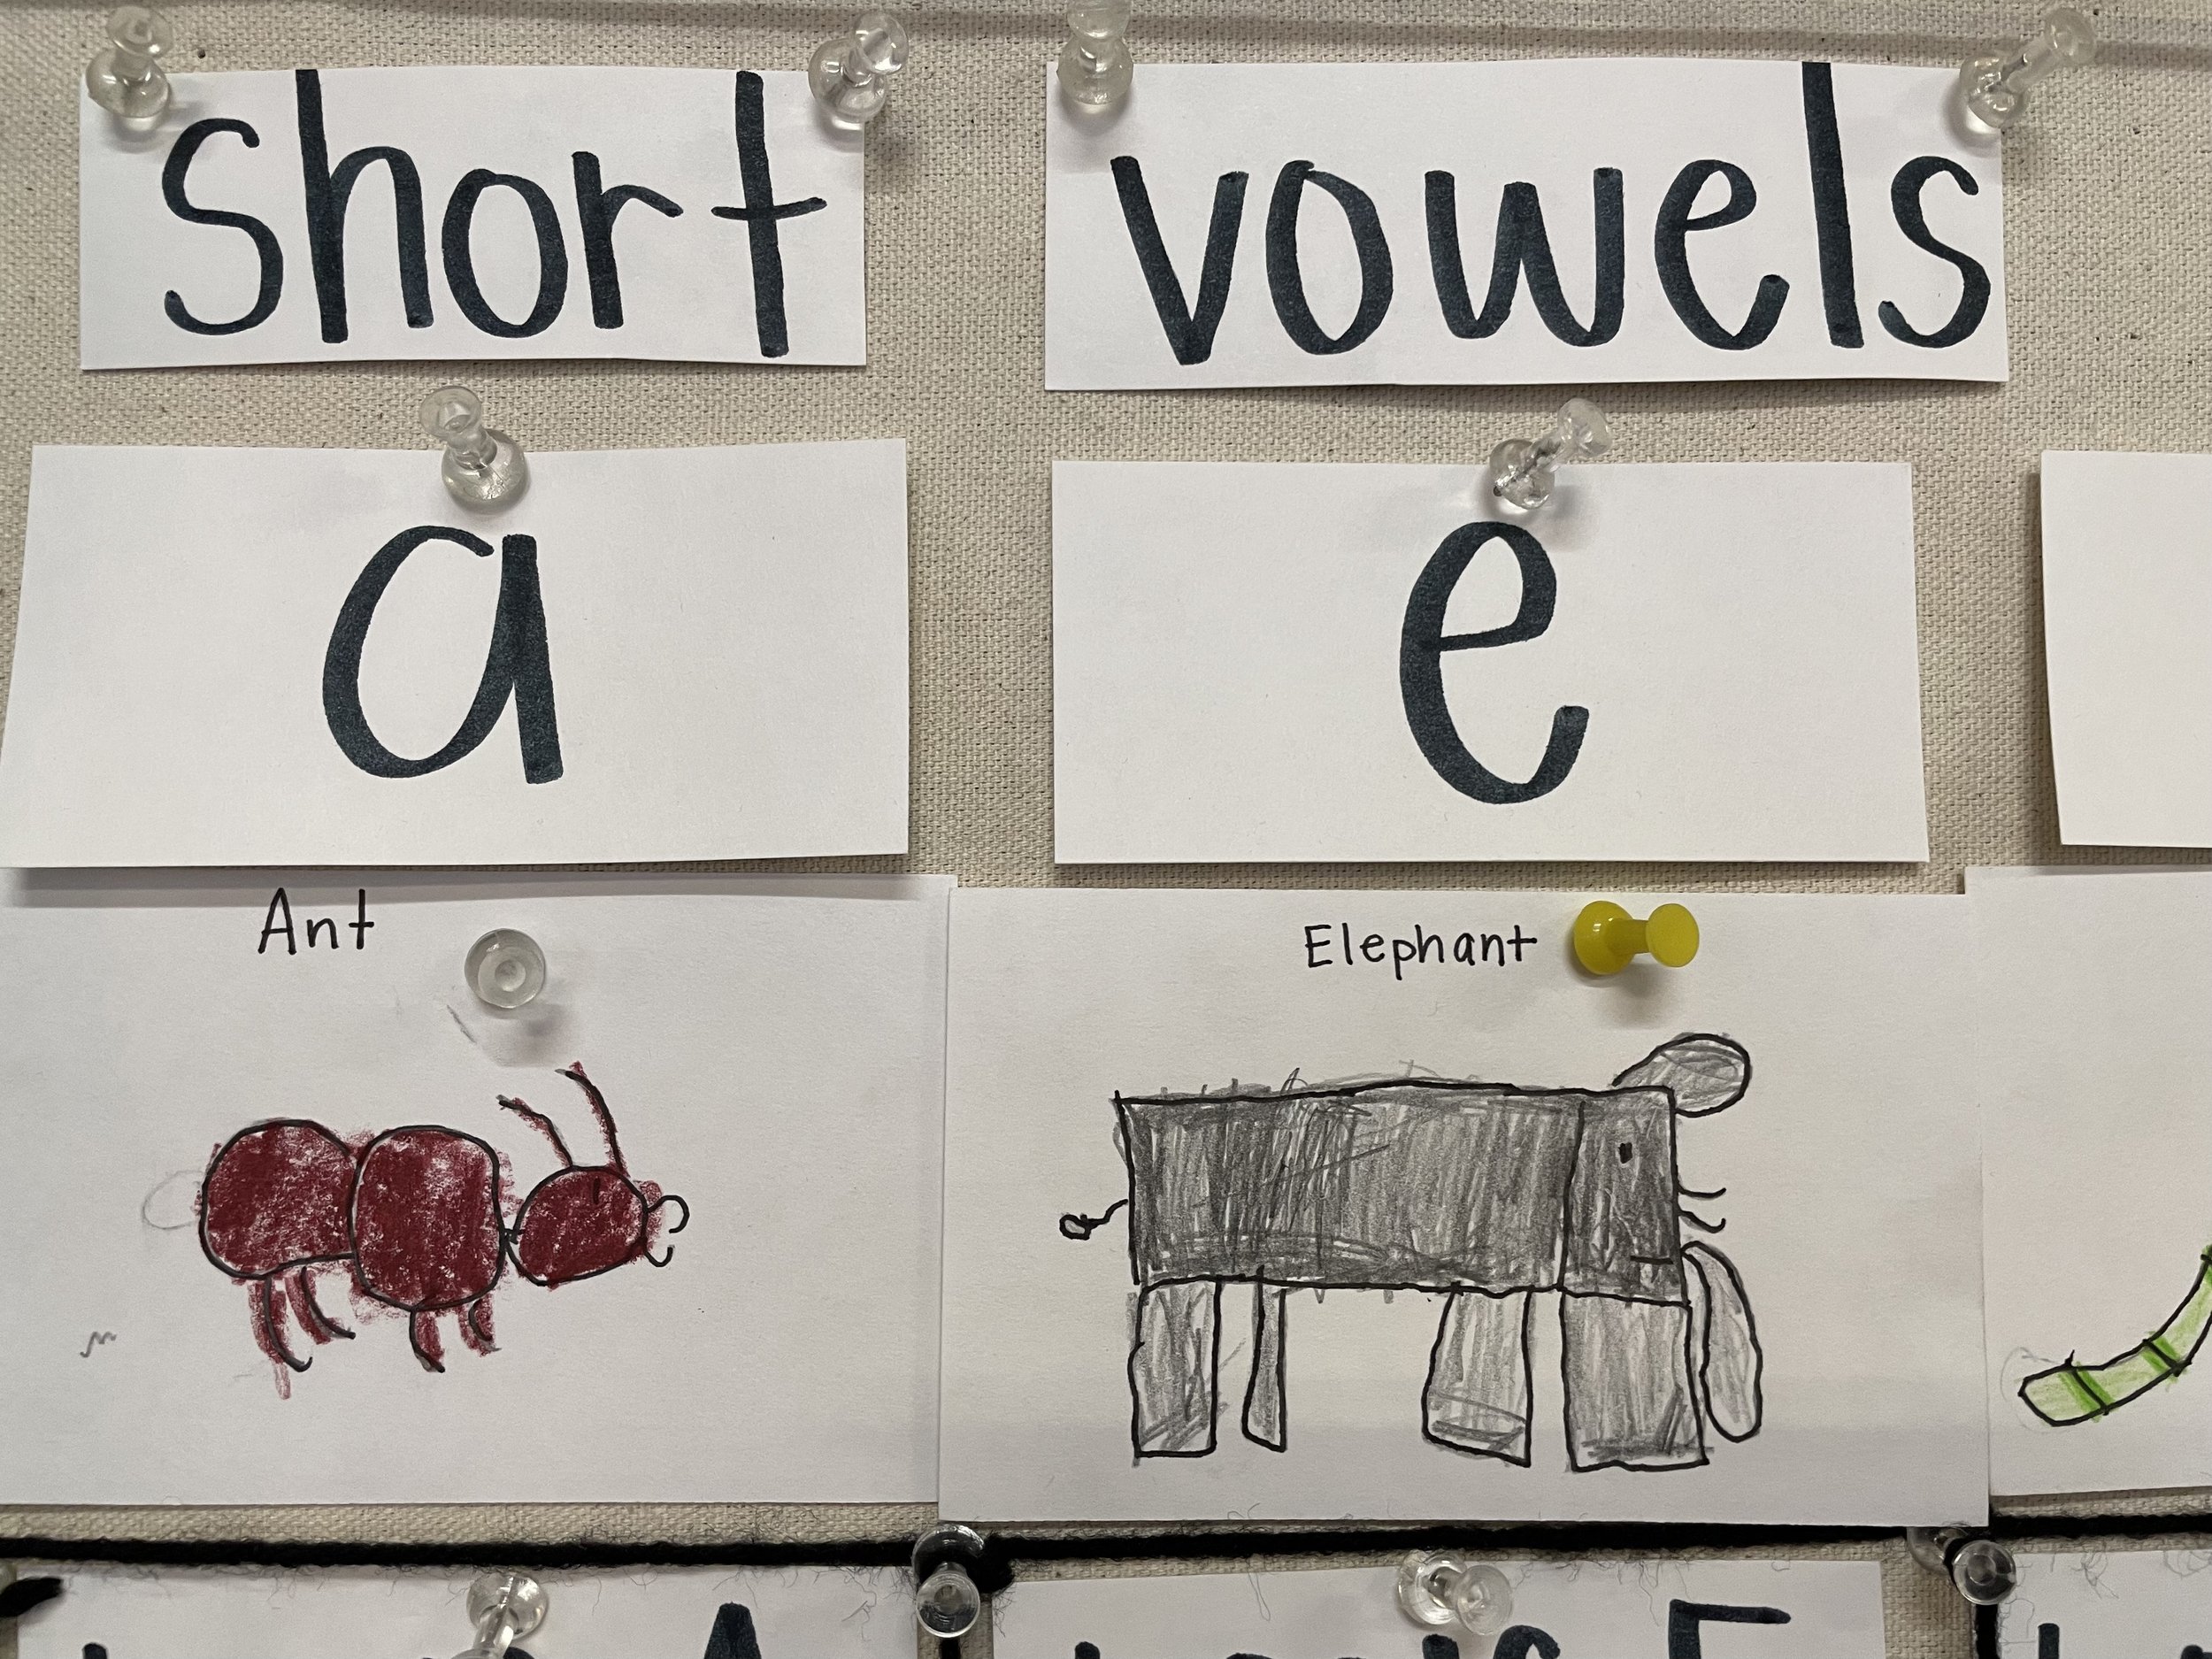 short vowels
a e
Ant Elephant